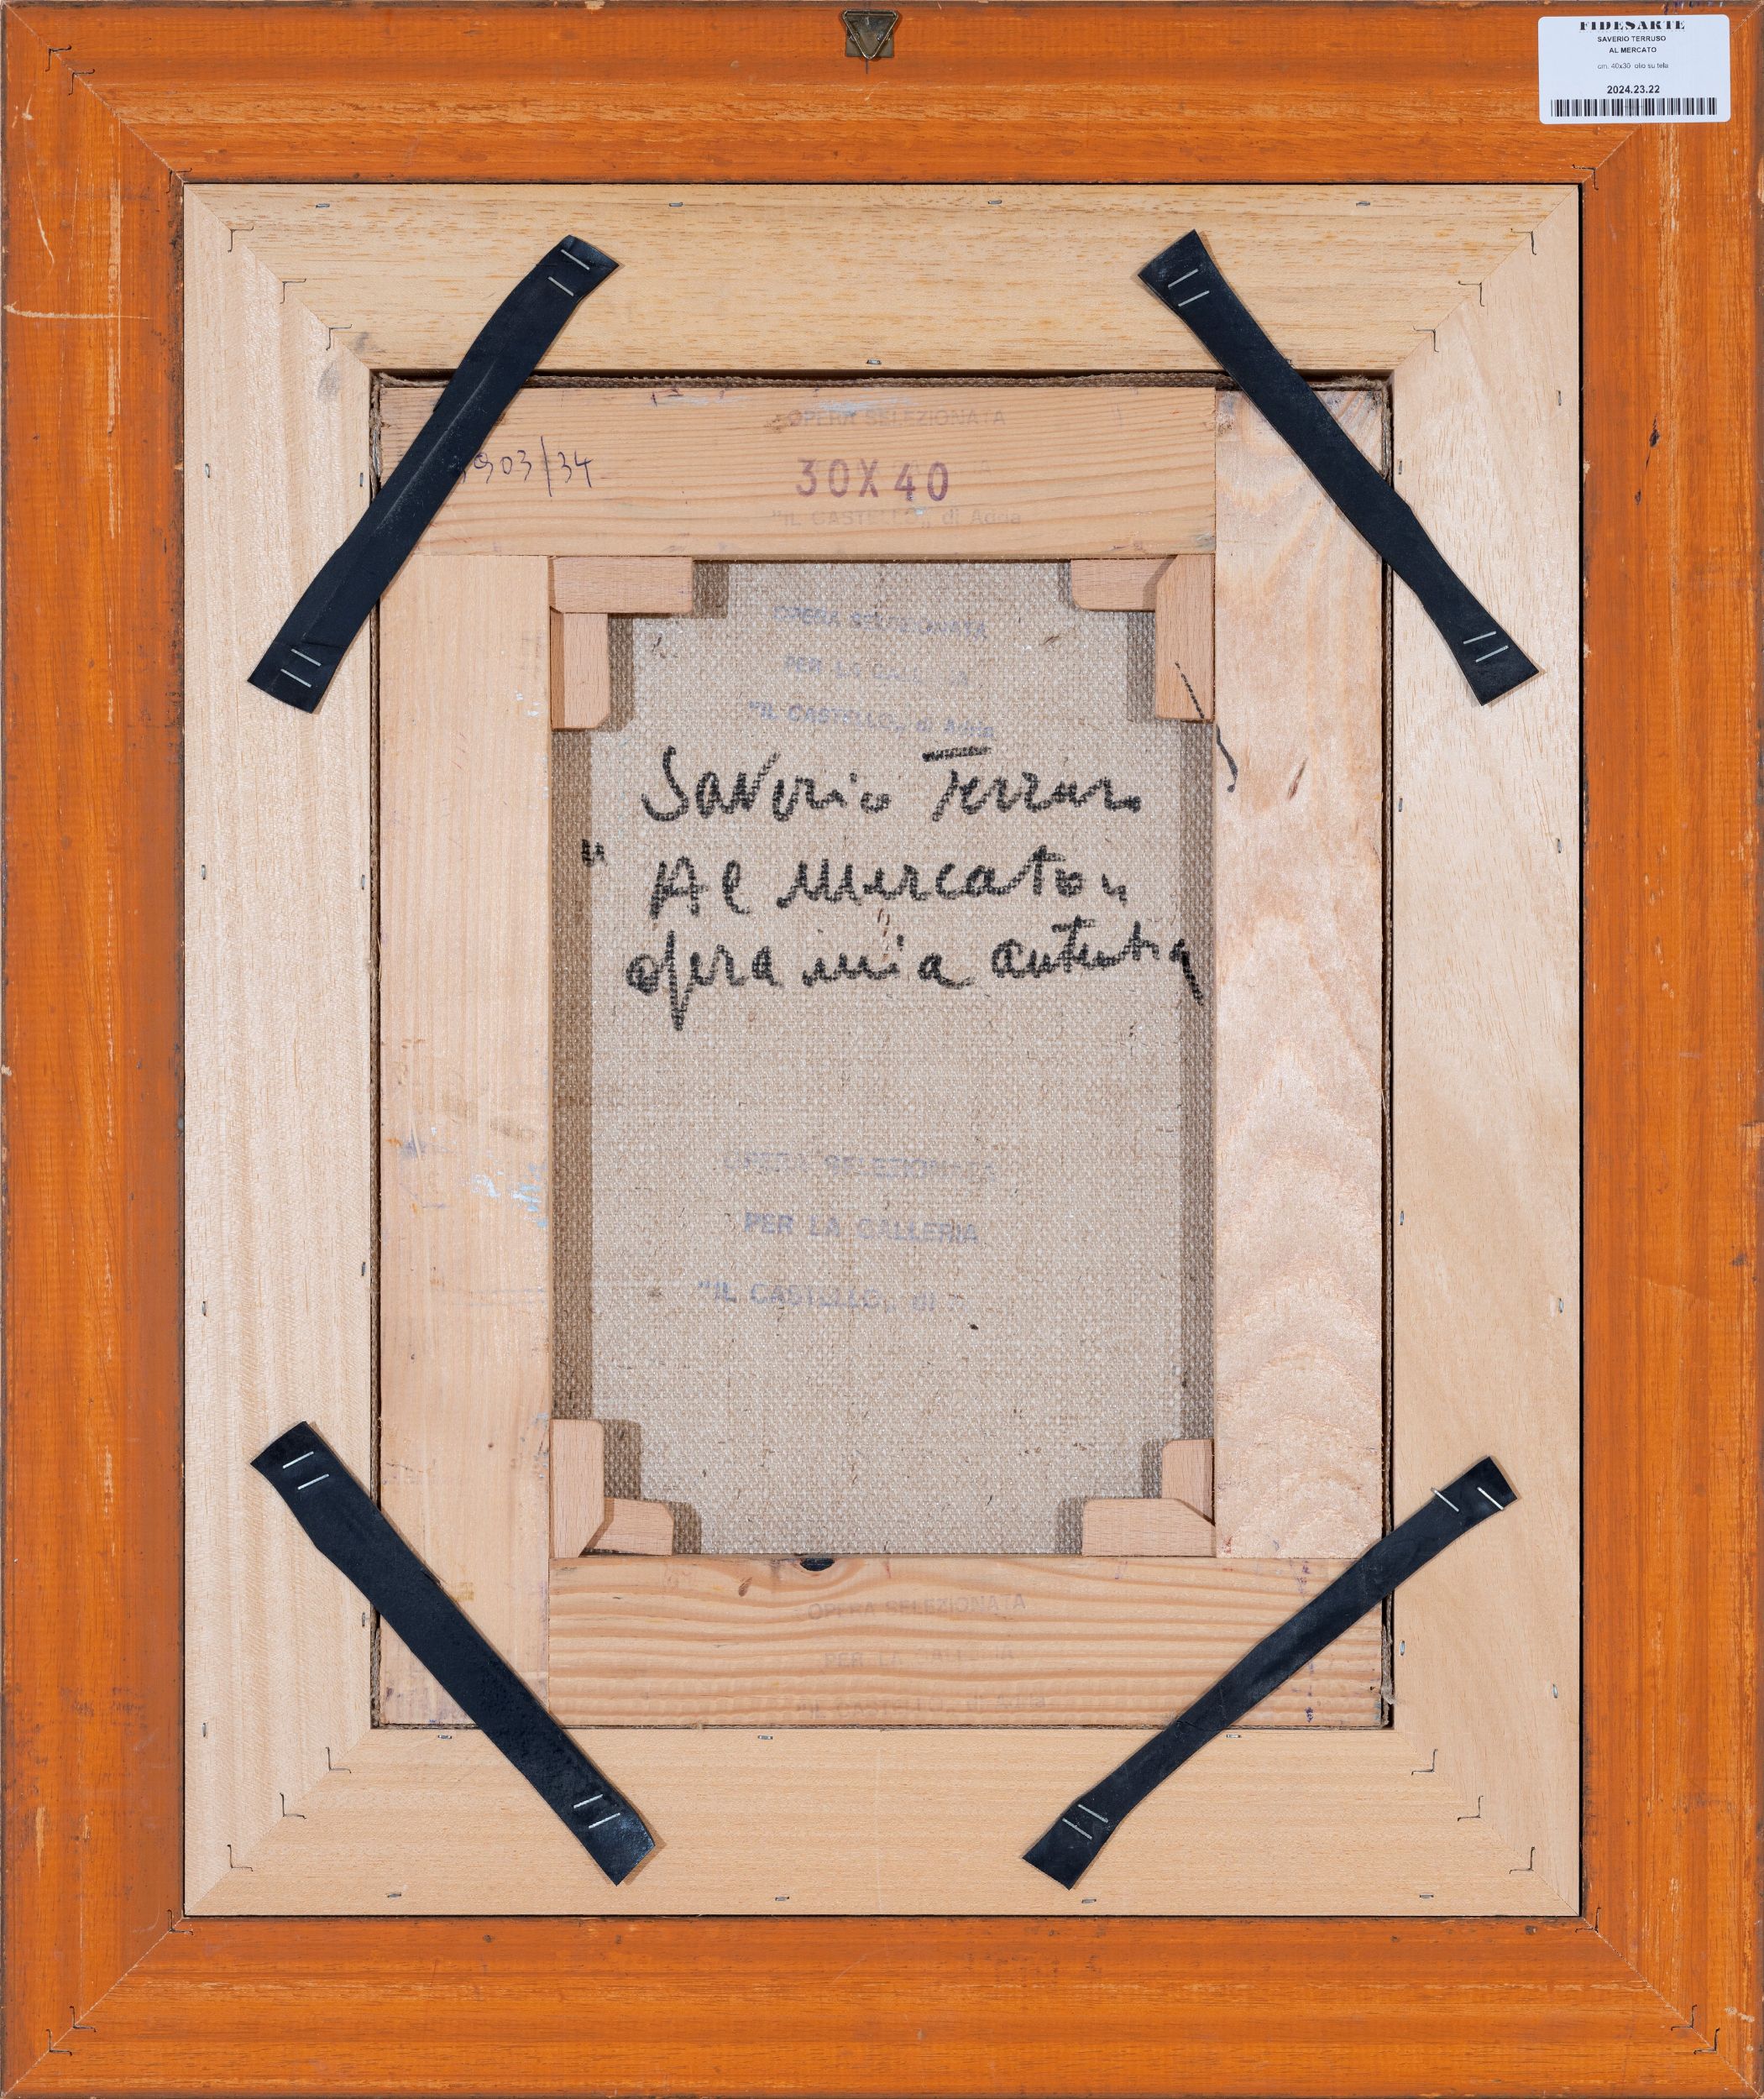 FIDESARTE
SAVERIO TERRUSO
AL MERCATO
cm. 40x30 olio su tela
2024.23.22
OPERA SELEZIONATA
903/34
30X40
"IL CASTELLO„ di Adria
OPERA SELEZIONATA
PER LA GALLERIA
"IL CASTELLO„ di Adria
Saverio Terruso
" Al mercato„
opera mia autentica
OPERA SELEZIONATA
PER LA GALLERIA
"IL CASTELLO„ di
OPERA SELEZIONATA
PER LA GALLERIA
"IL CASTELLO„ di Adria